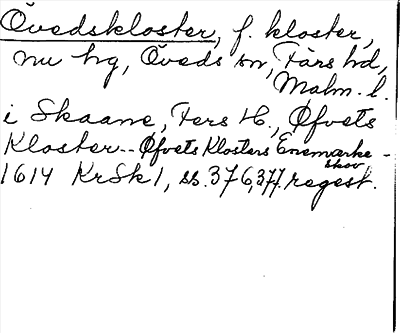 Övedskloster, f. kloster,
nu hg, Öveds sn, Färs hd,
Malm. l.
i Skaane, Fers H., Øfvets
Kloster -- Øfvets Klosters Enemærke -
skov
1614 KrSk 1, ss. 376, 377. regest.